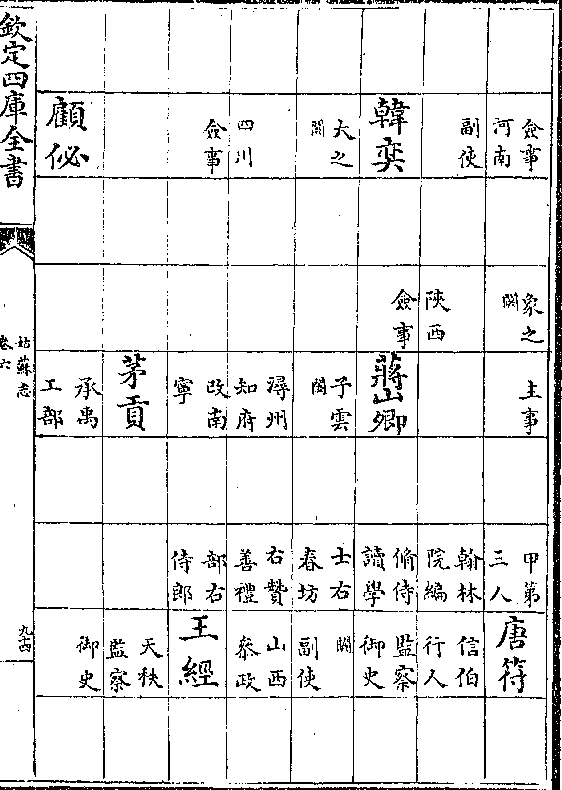 僉事
河南
副使
韓奕
大之
闕
四川
僉事
顧佖
象之
闕
陝西
僉事
主事
蔣山卿
子雲
闕
潯州
知府
改南
寧
茅貢
承禹
工部
甲第
三人
翰林
院編
脩侍
讀學
士右
春坊
右贊
善禮
部右
侍郎
唐符
信伯
行人
監察
御史
闕
副使
山西
叅政
王經
天秩
監察
御史
欽定四庫全書
姑蘇志
卷六
九十四